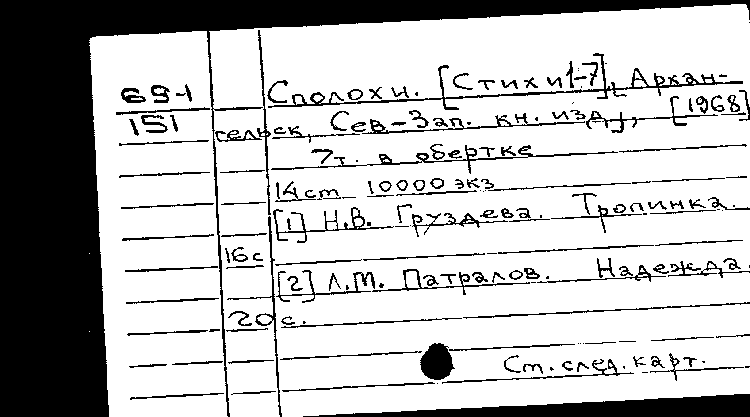 69-1 Сполохи. [Стихи 1-7], [Архан-
151 гельск, Сев-Зап. кн. изд.], [1968]
7т. в обертке
14 ст 10000 экз
[1] Н.В. Груздева. Тропинка.
16 с
[2] Л.М. Патралов. Надежда.
20 с.
См. след. карт.